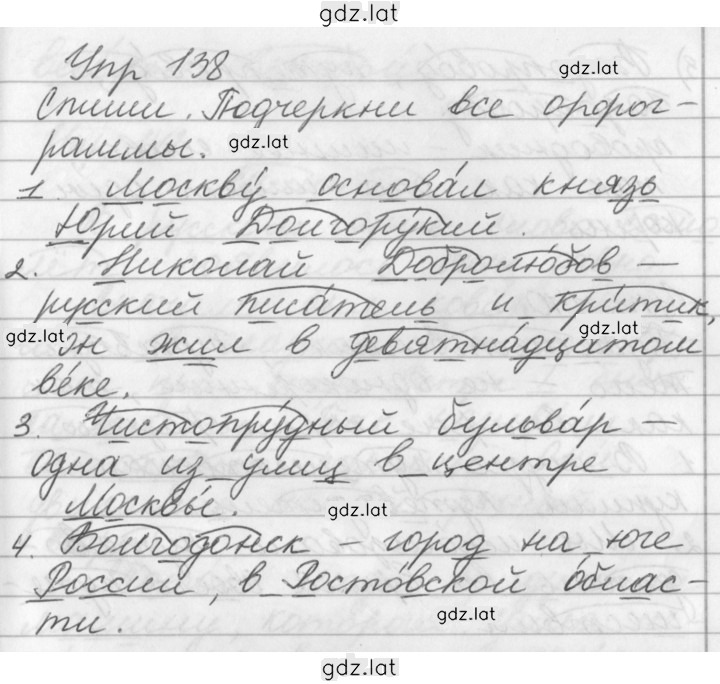 gdz.lat
Упр 138
gdz.lat
Спиши. Подчеркни все орфог-
раммы. gdz.lat
1. Москву́ основа́л князь
Юрий Долгору́кий.
2. Николай Добролю́бов —
русский писа́тель и кри́тик,
gdz.lat Он жил в девятна́дцатом gdz.lat
ве́ке.
3. Чистопру́дный бульва́р —
одна из улиц в центре
Москвы́. gdz.lat
4. Волгодонск — город на юге
России, в Росто́вской о́блас-
ти. gdz.lat
gdz.lat